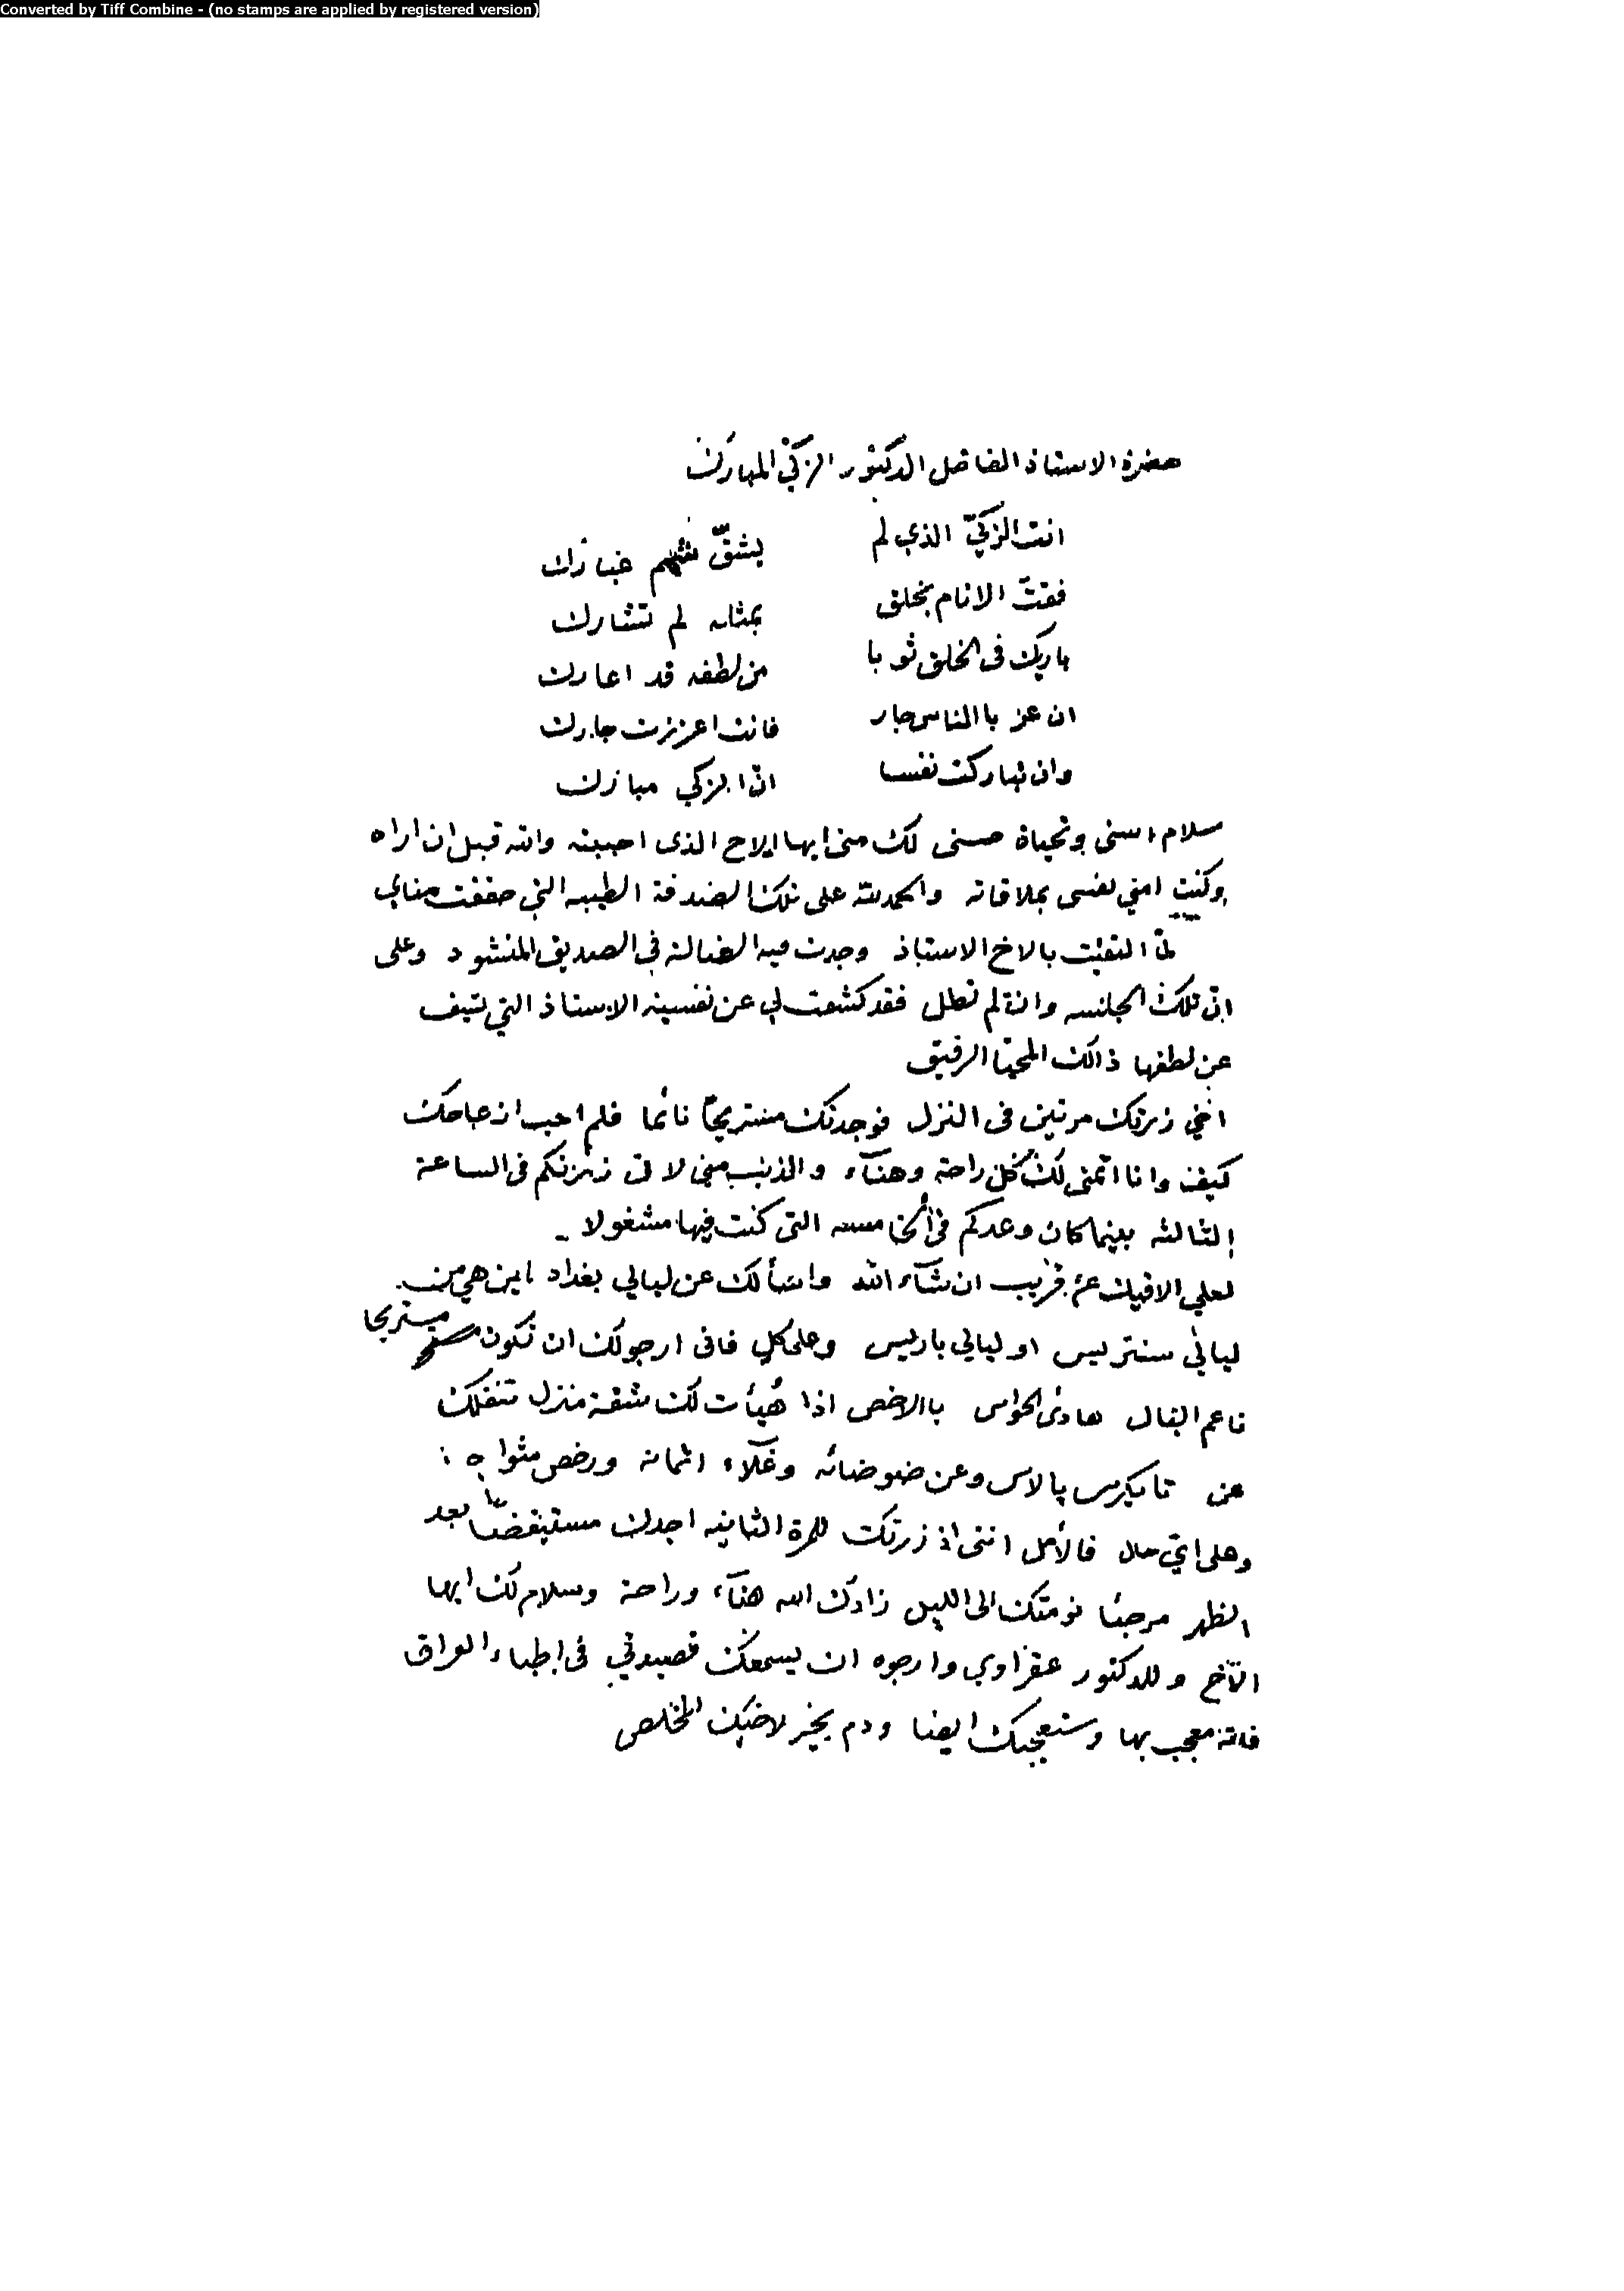 Converted by Tiff Combine - (no stamps are applied by registered version)
حضرة الاستاذ الفاضل الدكتور الزكي المبارك
انت الزكيّ الذي لم يشقّ شهم غبارك
فقتَ الانام بخلق بمثله لم تشارك
باريك في الخلق ثوبا من لطفه قد اعارك
ان عز باالناس جار فانت اعززت جارك
وان تباركت نفسا انّ الزكي مبارك
سلام اسنى وتحياة حسنى لك مني ايها الاخ الذى احببته والله قبل ان اراه
وكنت امني نفسى بملاقاته والحمد لله على تلك الصدفة الطيبه التي حققت مناي
لمّا التقيت بالاخ الاستاذ وجدت فيه الضالة في الصديق المنشود وعلى
انّ تلك الجلسه وان لم تطل فقد كشفت لي عن نفسية الاستاذ التي تشف
عن لطفها ذالك المحيّا الرقيق
اخي زرتك مرتين في النزل فوجدتك مستريحاً نائما فلم احب ازعاجك
كيف وانا اتمنى لك كل راحة وهنآء والذنب مني لاني زرتكم في الساعة
الثالثه بينما كان وعدكم في الخامسه التى كنت فيها مشغولا -
لعلي الاقيك عن قريب ان شآء الله واسألك عن ليالي بغداد اين هي من
ليالي سنتريس او ليالي باريس وعلى كلٍ فانى ارجو لك ان تكون مستريحا
ناعم البال هادئ الحواس باالاخص اذا هُيأت لك شقة منزل تنقلك
عن تايكرس پالاس وعن ضوضائه وغلآء اثمانه ورخص مثواه :
وعلى ايّ حال فالأمل انني اذ زرتك للمرة الثانيه اجدك مستيقضاً بعد
الظهر مرجئا نومتك الى الليل زادك الله هنآء وراحة وسلام لك ايها
الآخ وللدكتور عقراوي وارجوه ان يسمعك قصيدتي في اطباء العراق
فانه معجب بها وستعجبك ايضا ودم بخير لاخيك المخلص